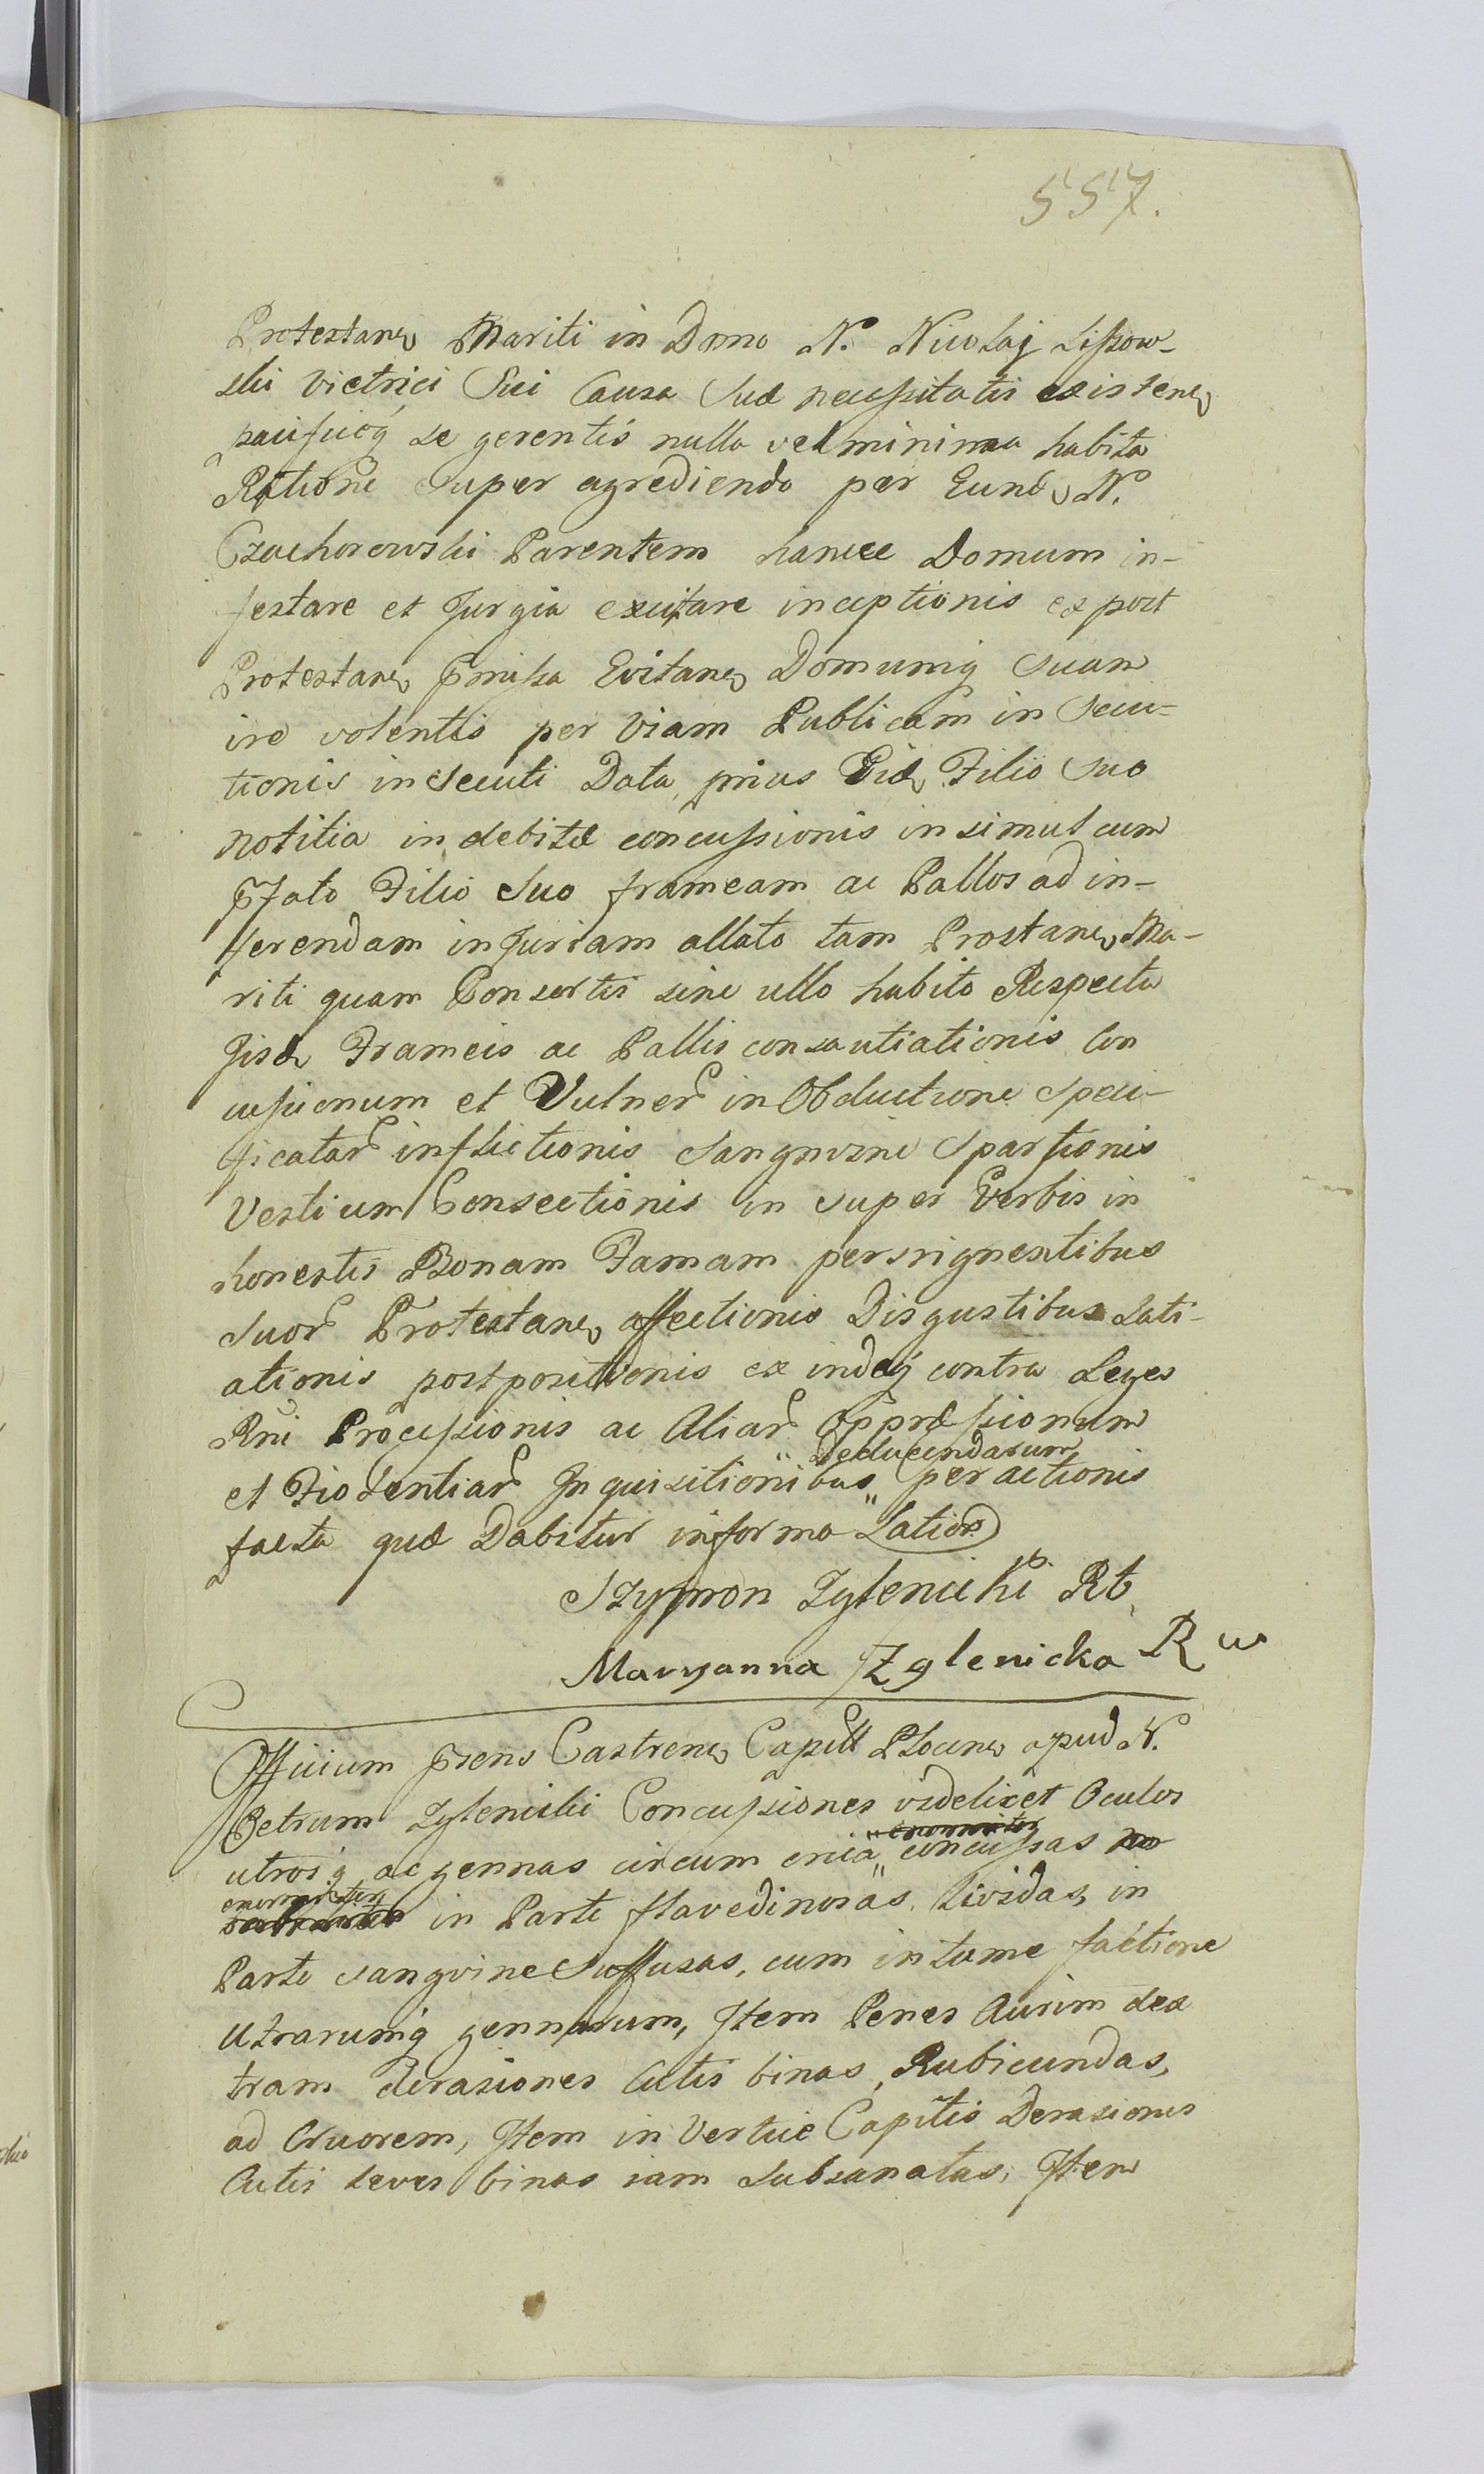 557.
Protestane Mariti in Domo N. Nicolaj Lissow-
ski Victrici Sui Causa Suæ necessitatis existene
pacificeq se gerentis nulla vel minima habita
Ratione super agrediendo per Eund N.
Czachorowski Parentem hancce Domum in-
festare et Jurgia excitare inceptionis ex post
Protestane pmissa Evitane Domumq suam
ire volentis per Viam Publicam in Secu-
tionis insecuti Data prius Eid Filio Suo
notitia indebitæ concussionis insimul cum
pfato Filio Suo frameam ac Pallos ad in-
ferendam inJuriam allato tam Prostane Ma-
riti quam Consortis sine ullo habito Respectu
Jisd Frameis ac Pallis consautiationis Con
cussionum et Vulner in Obductione Speci-
ficatar inflictionis Sangvine Sparsionis
Vestium Consectionis in super Verbis in
honestis Bonam Famam perstringentibus
Suor Protestane affectionis Disgustibus Sati-
ationis postpositionis ex indeq contra Leges
Rni Processionis ac Aliar Oppræssionum
et Violentiar Inquisitionibus "Deducendarum" peractionis
facta quæ Dabitur in forma Latiori
Szymon Zglenicki Rt
Maryanna Zglenicka R w
Officium psens Castrene Capitt Plocene apud N.
Petrum Zglenicki Concussiones videlicet Oculos
utrosq ac gennas circum circa concussas
enormiter in Parte flavedinosas, lividas, in
Parte sangvine Suffusas, cum intume factione
Utrarumq gennarum, Item Penes Aurim dex
tram derasiones Cutis binas, Rubicundas,
ad Cruorem, Item in Vertice Capitis Derasiones
Cutis leves binas iam Subsanatas, Item